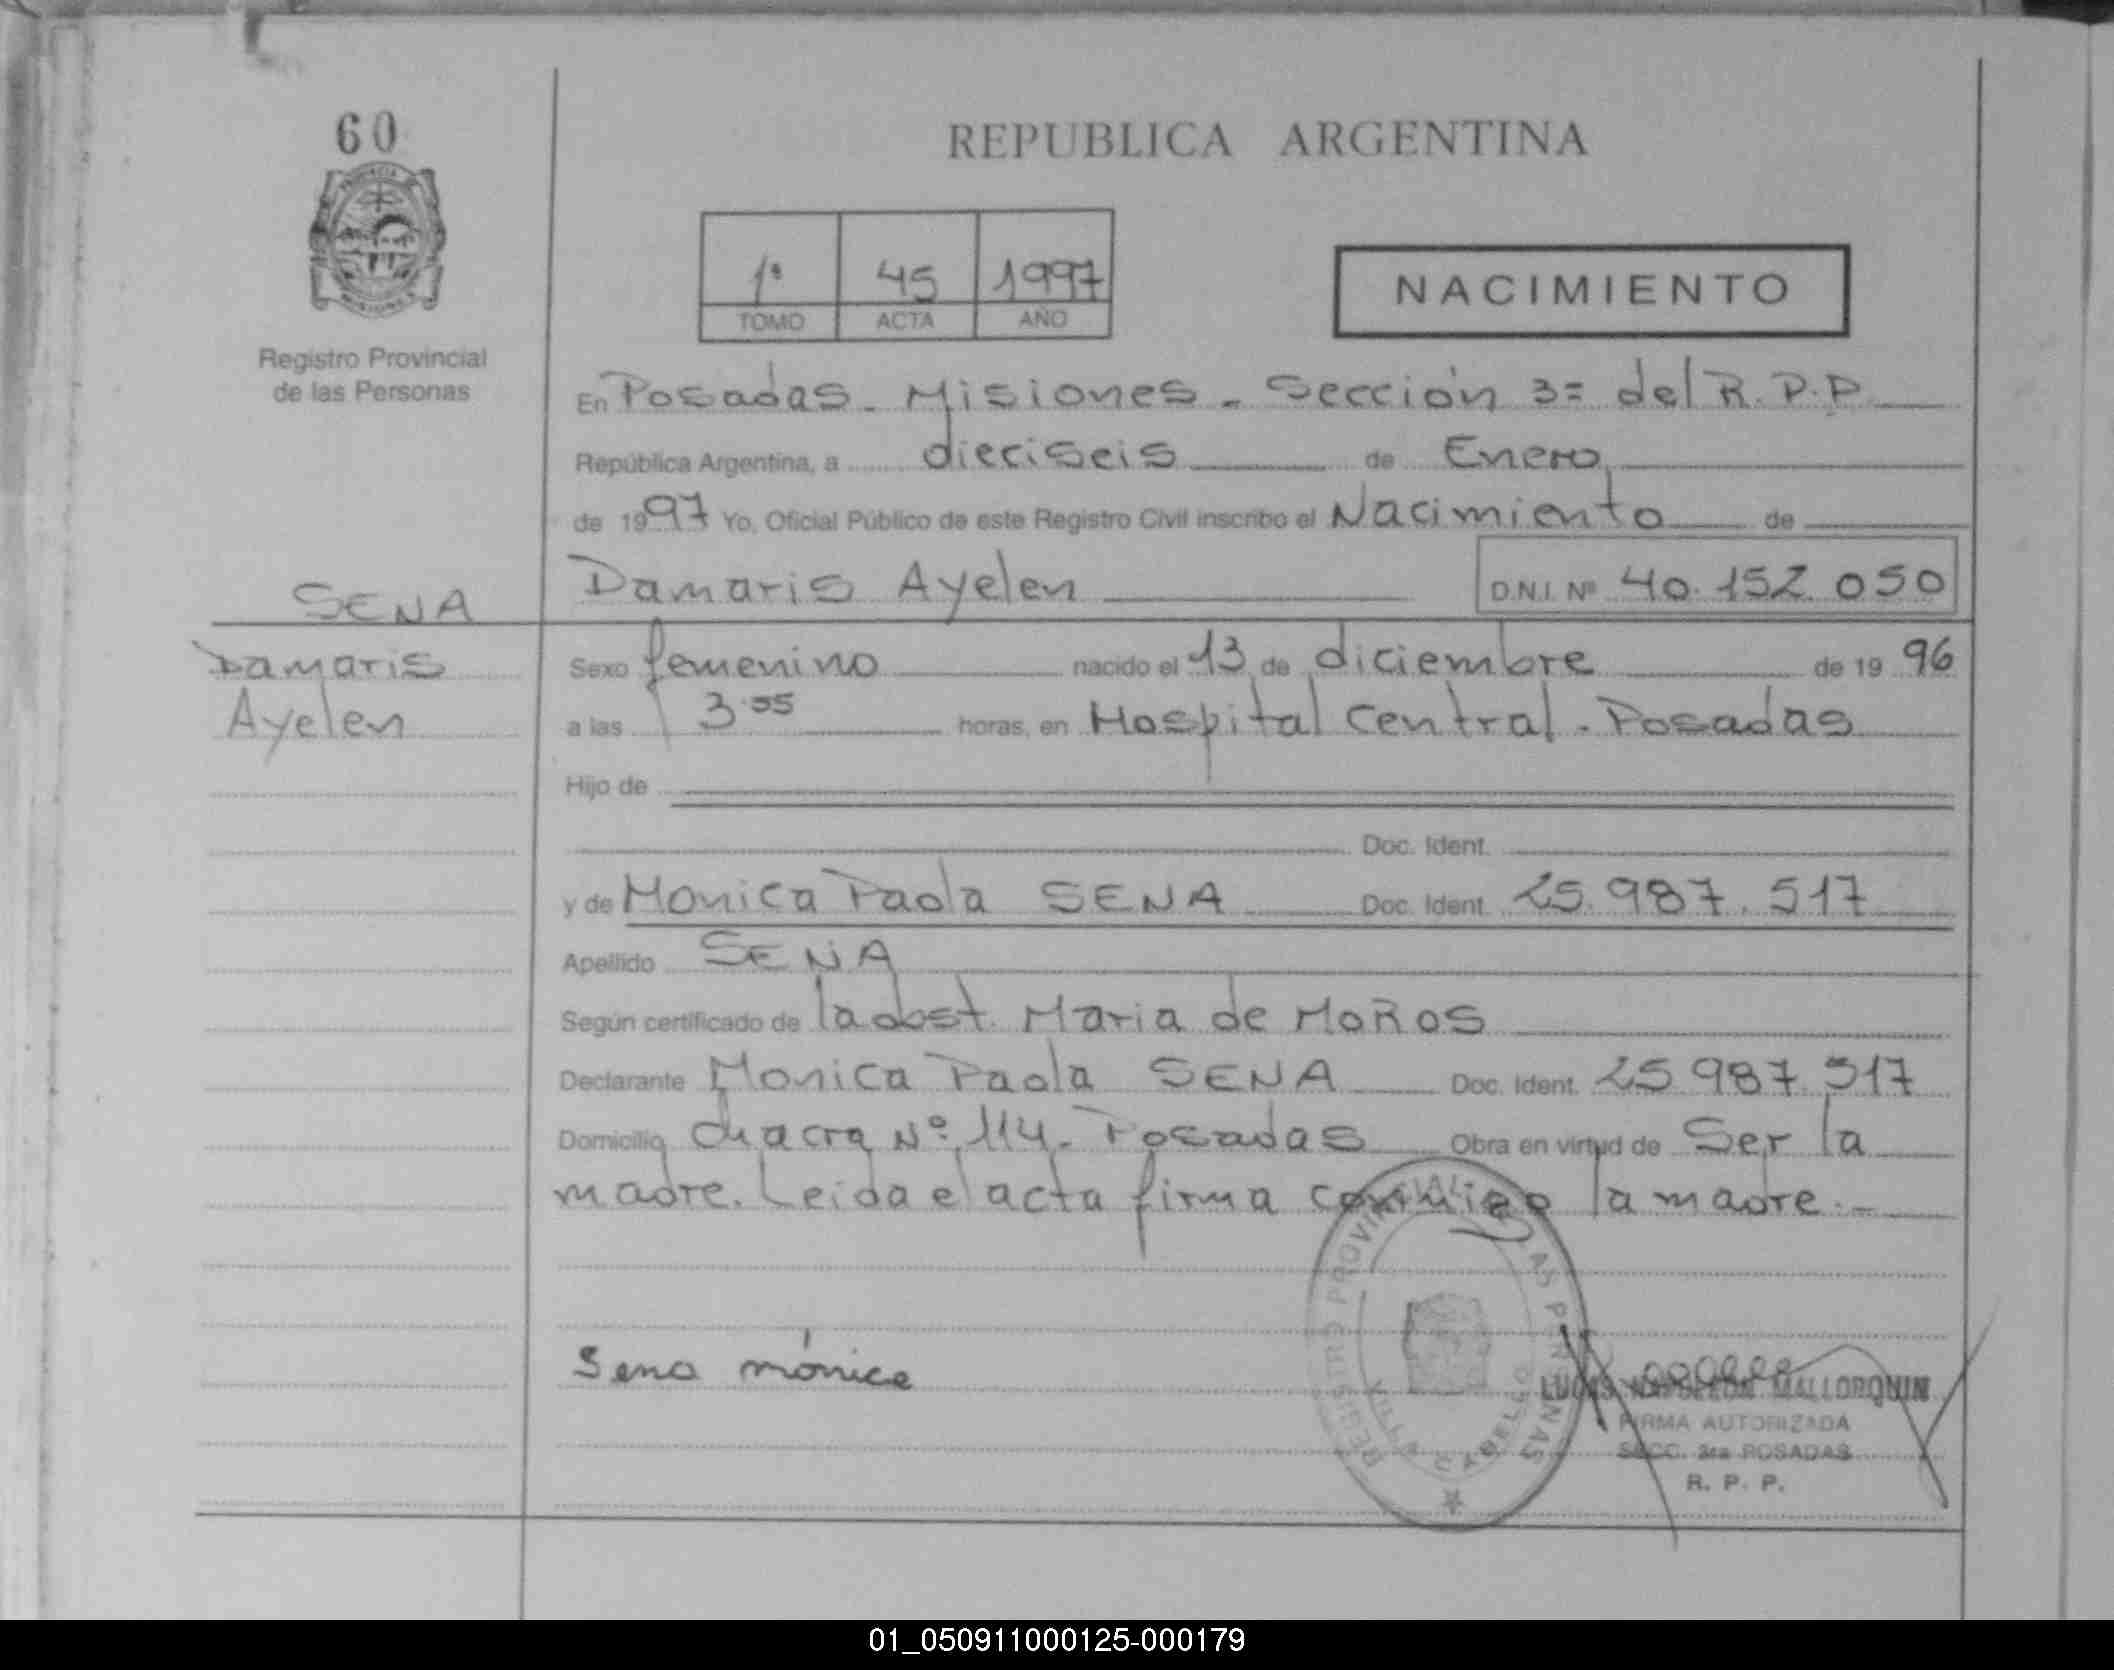 60
REPUBLICA ARGENTINA
1ª 45 1997
TOMO ACTA AÑO
NACIMIENTO
Registro Provincial
de las Personas
En Posadas - Misiones - Sección 3= del R.P.P
República Argentina, a dieciseis de Enero
de 1997 Yo, Oficial Público de este Registro Civil inscribo el Nacimiento de
SENA
Damaris Ayelen D.N.I. Nº 40.152.050
Damaris
Ayelen
Sexo femenino nacido el 13 de diciembre de 19 96
a las 3.55 horas, en Hospital Central - Posadas
Hijo de
Doc. Ident.
y de Monica Paola SENA Doc. Ident. 25.987.517
Apellido SENA
Según certificado de la obst. Maria de MOROS
Declarante Monica Paola SENA Doc. Ident. 25.987.517
Domicilio chacra Nº 114 - Posadas Obra en virtud de Ser la
madre. Leida el acta firma conmigo la madre.-
Sena mónica
REGISTRO PROVINCIAL DE LAS PERSONAS
VILLA CABELLO
MALLORQUIN
FIRMA AUTORIZADA
SECC. 3ra POSADAS
R. P. P.
01_050911000125-000179